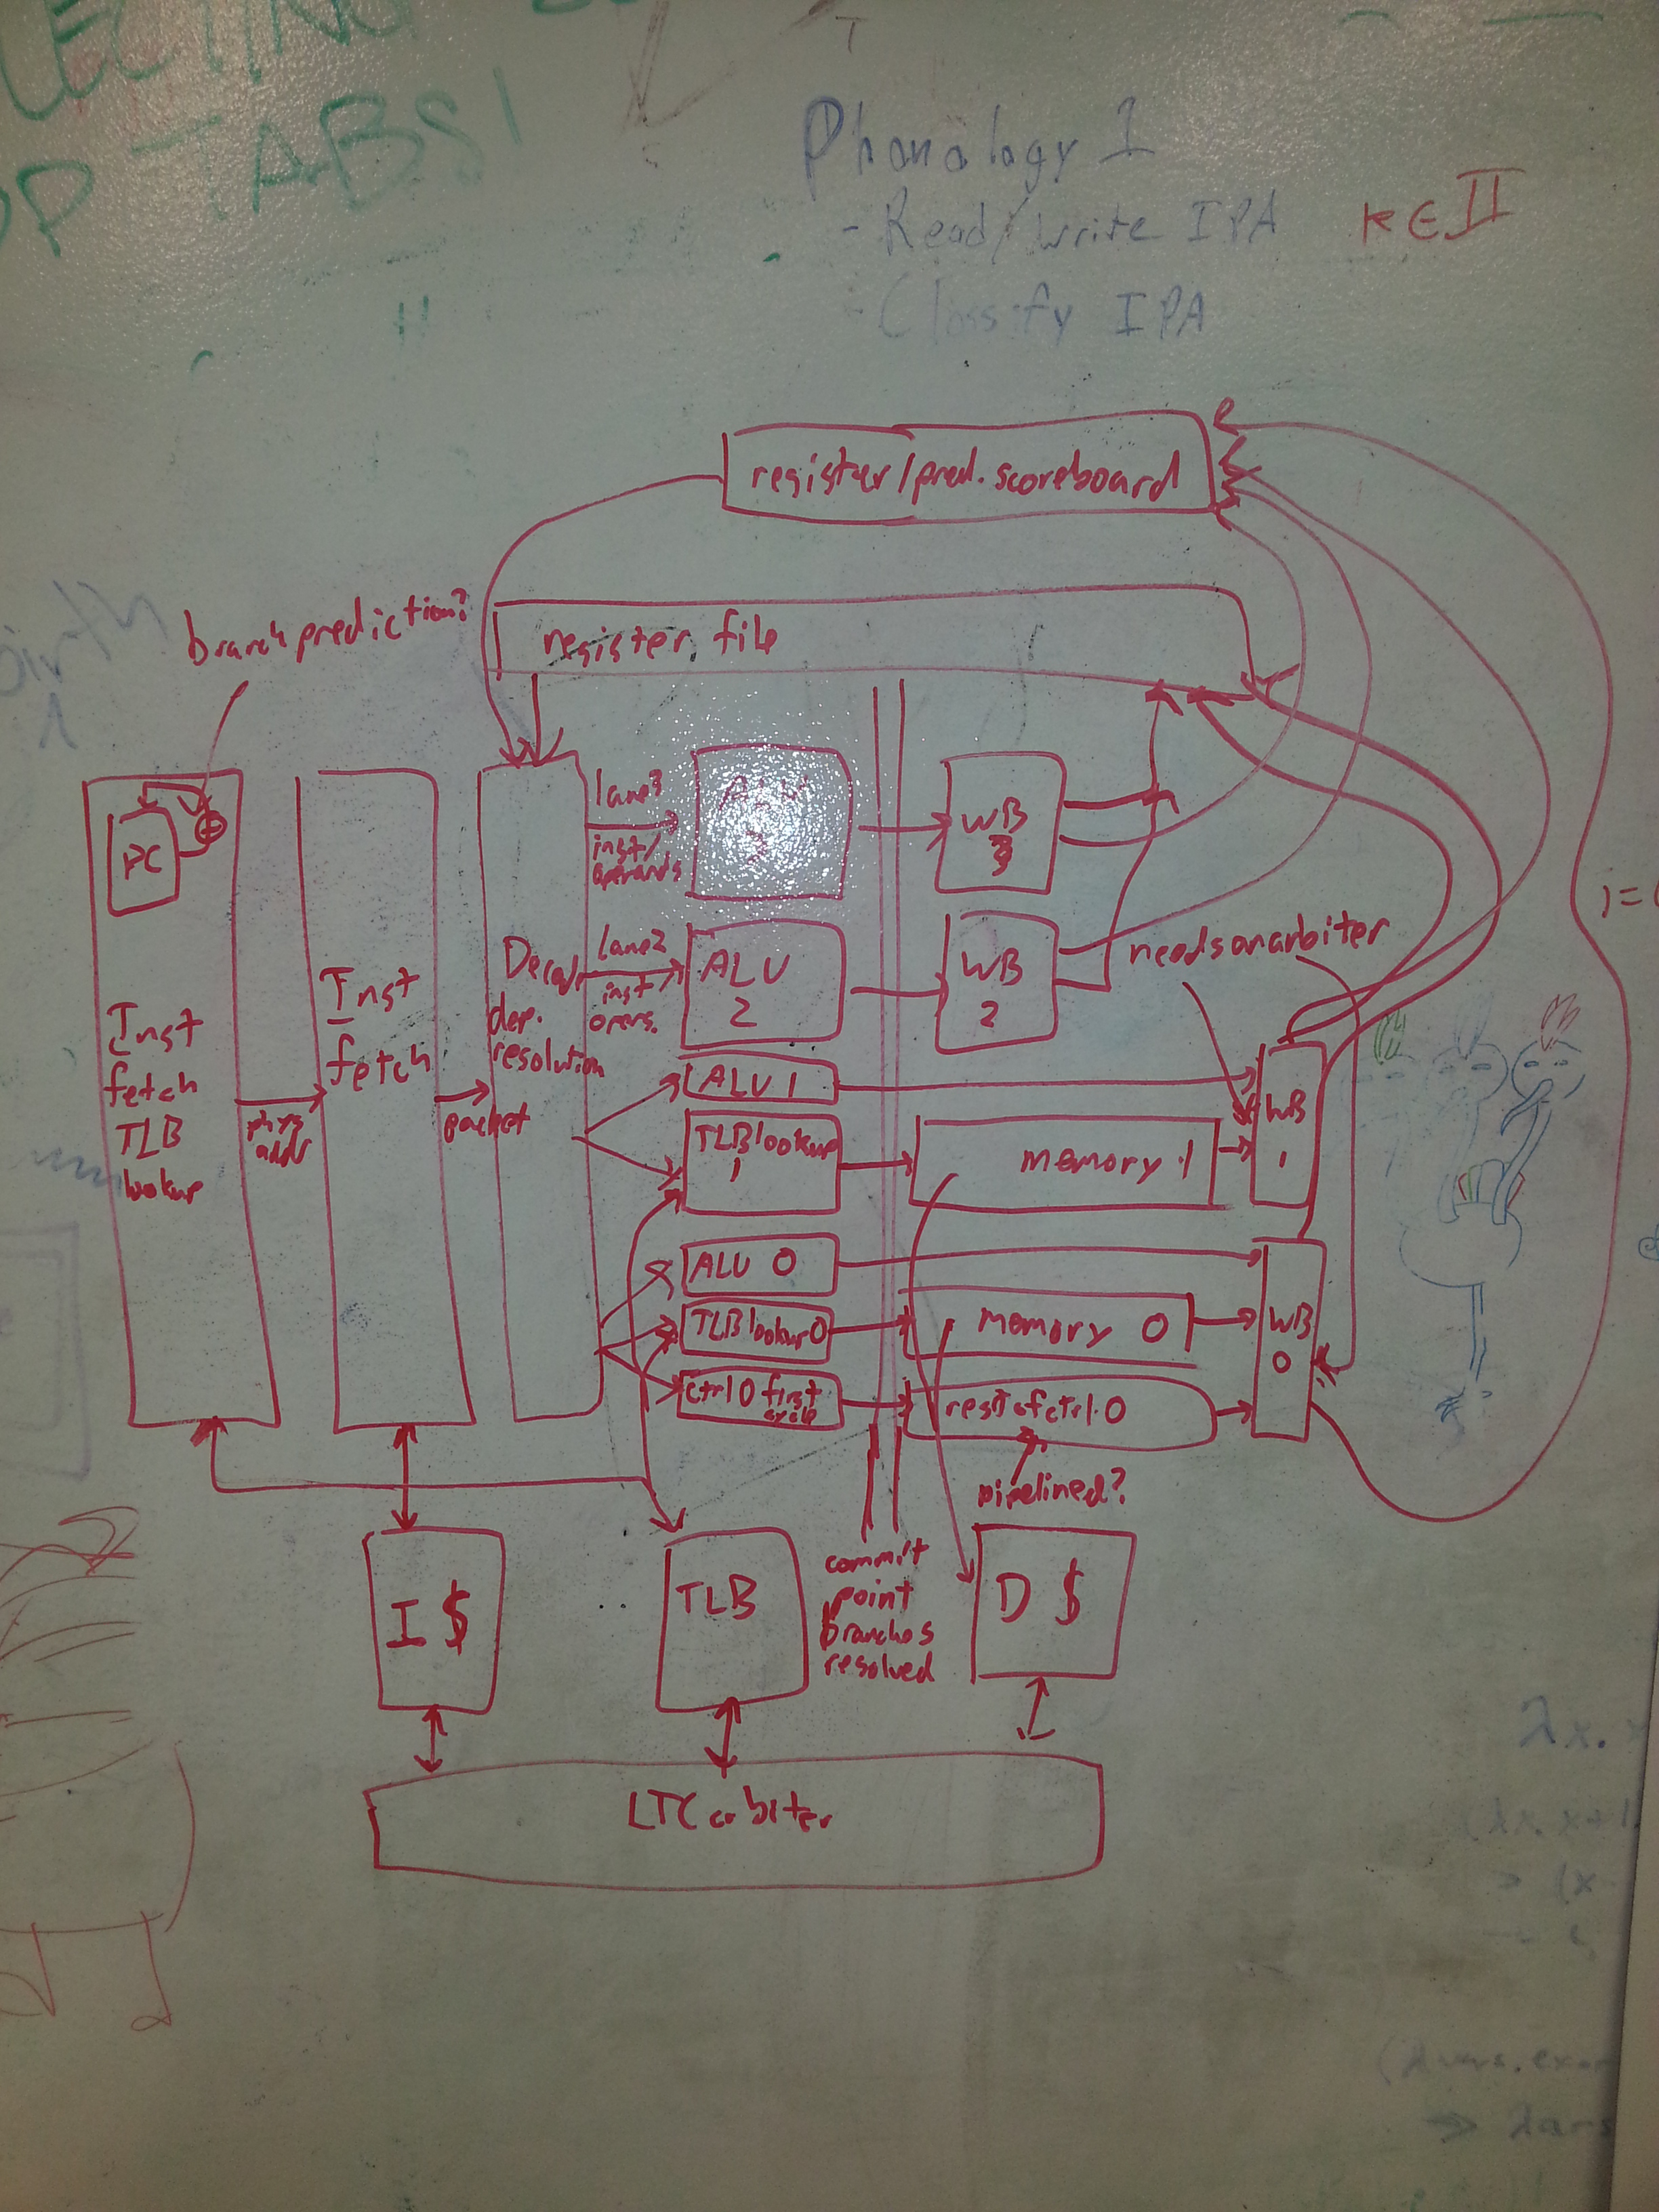 TABS!
Phonology 1
- Read/write IPA
K∈II
- Classify IPA
register/pred. scoreboard
branch prediction?
register file
PC
Inst
fetch
TLB
lookup
phys
addr
Inst
fetch
packet
Decode
dep.
resolution
lane3
inst/
operands
ALU
3
WB
3
lane2
inst
opers.
ALU
2
WB
2
needs an arbiter
i=
ALU 1
TLB lookup
1
memory 1
WB
1
ALU 0
TLB lookup 0
memory 0
WB
0
ctrl 0 first
cycle
rest of ctrl 0
pipelined?
I $
TLB
commit
point
branches
resolved
D $
LTC arbiter
λx.